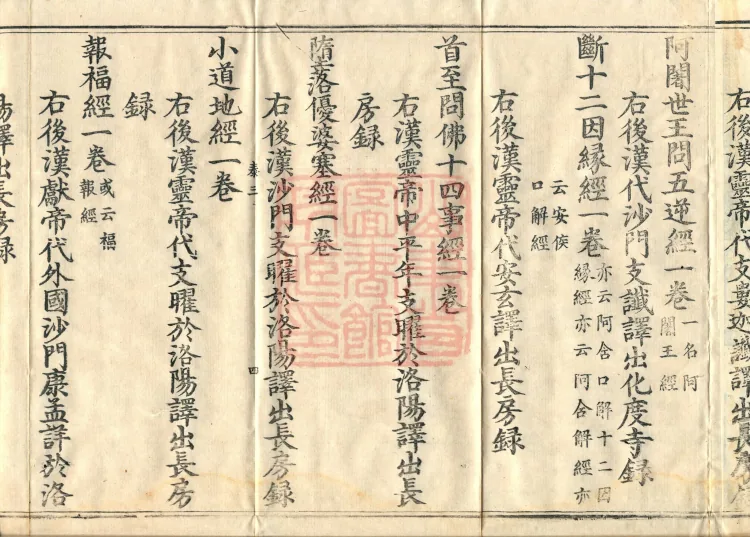 右後漢靈帝代支婁迦讖譯出長房
阿闍世王問五逆經一卷一名阿闍王經
右後漢代沙門支讖譯出化度寺録
斷十二因縁經一卷亦云阿含口解十二因縁經亦云阿含解經亦
云安侯口解經
右後漢靈帝代安玄譯出長房録
首至問佛十四事經一卷
右漢靈帝中平年支曜於洛陽譯出長
房録
墮落優婆塞經一卷
右後漢沙門支曜於洛陽譯出長房録
四
小道地經一卷
右後漢靈帝代支曜於洛陽譯出長房
録
報福經一卷或云福報經
右後漢獻帝代外國沙門康孟詳於洛
陽譯出長房録